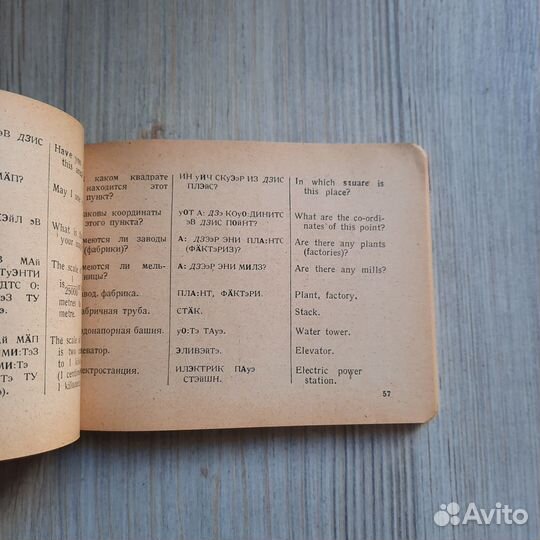 эВ ДЗИС
МӒП?
КЭЙЛ эВ
В МАй
ТуЭНТИ
ДТС О:
эЗ ТУ
й МӒП
МИ:ТэЗ
МИ:Тэ
Тэ ТУ
э).
Have
this
May I
What is
your
The scale
is 1
25000
metres
metre.
The scale
is two
to 1
(1 centi
1 kilome
каком квадрате
находится этот
пункт?
ИН уИЧ СКуЭэР ИЗ ДЗИС
ПЛЭйС?
In which square is
this place?
аковы координаты
этого пункта?
уОТ А: ДЗЭ КОуО:ДИНИТС
эВ ДЗИС ПОйНТ?
What are the co-ord-
inates of this point?
меются ли заводы
(фабрики)?
А: ДЗЭэР ЭНИ ПЛА:НТС
(ФӒКТэРИЗ)?
Are there any plants
(factories)?
меются ли мель-
ницы?
А: ДЗЭэР ЭНИ МИЛЗ?
Are there any mills?
вод. фабрика.
ПЛА:НТ, ФӒКТэРИ.
Plant, factory.
бричная труба.
СТӒК.
Stack.
донапорная башня.
уО:Тэ ТАуэ.
Water tower.
еватор.
ЭЛИВЭйТэ.
Elevator.
ектростанция.
ИЛЭКТРИК ПАуэ
СТЭйШН.
Electric power
station.
57
Avito